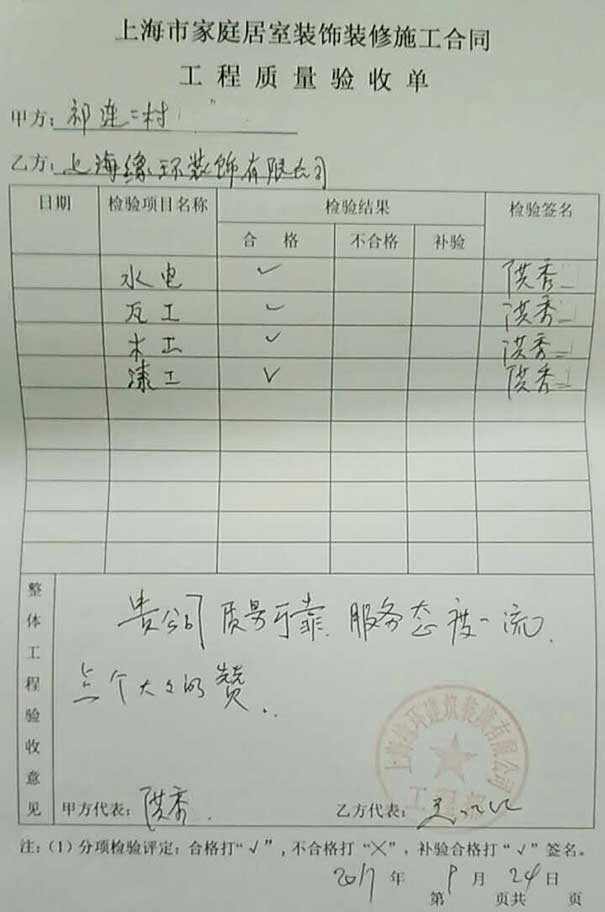 上海市家庭居室装饰装修施工合同
工程质量验收单
甲方：祁连二村
乙方：上海缘环装饰有限公司
日期 检验项目名称 检验结果 检验签名
合格 不合格 补验
水电 ✓ 洪秀
瓦工 ✓ 洪秀
木工 ✓ 洪秀
漆工 ✓ 洪秀
整体工程验收意见
贵公司质量可靠、服务态度一流、
点个大大的赞.
上海缘环建筑装潢有限公司
甲方代表：洪秀
乙方代表：
注：(1)分项检验评定：合格打“√”，不合格打“╳”，补验合格打“√”签名。
2017年9月24日
第 页共 页